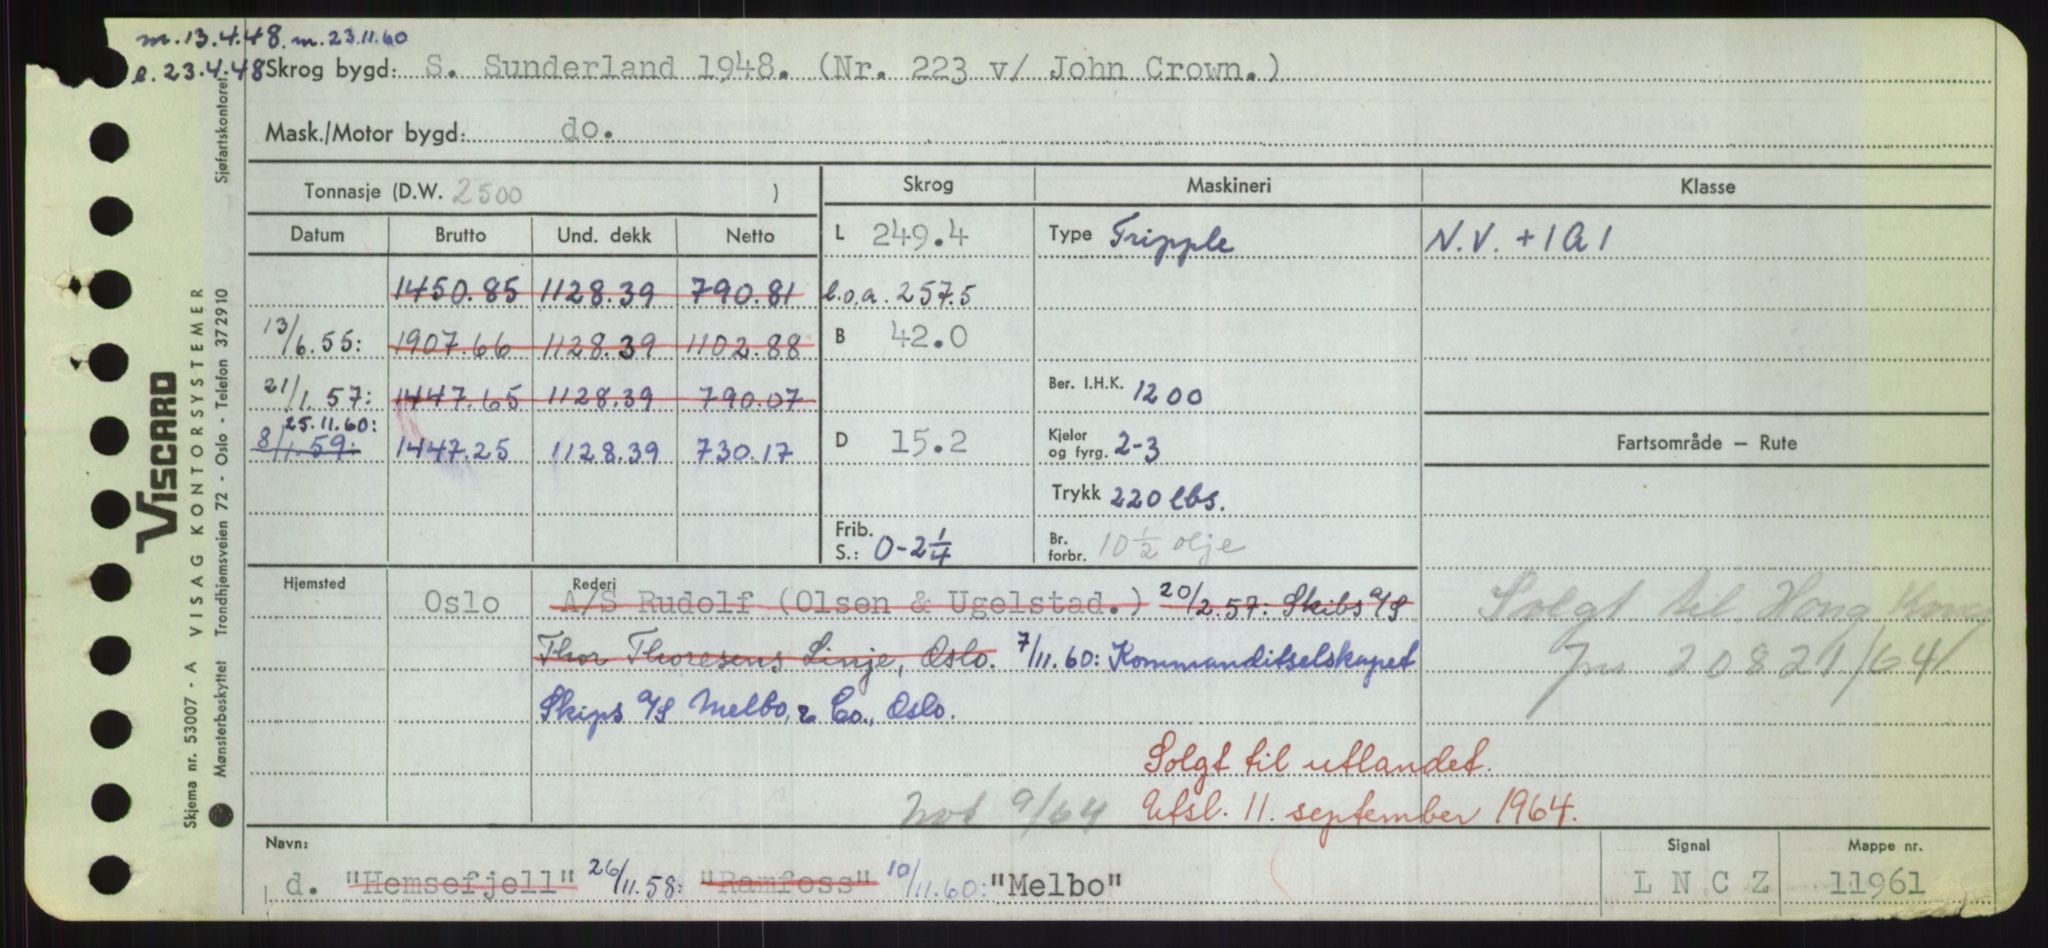 m.13.4.48. m.23.11.60
e.23.4.48 Skrog bygd: S. Sunderland 1948. (Nr. 223 v/ John Crown.)
Mask./Motor bygd: do.
Tonnasje (D.W. 2500 ) Skrog Maskineri Klasse
Datum Brutto Und. dekk Netto L 249.4 Type Tripple N.V. +1A1
1450.85 1128.39 790.81 l.o.a. 257.5
13/6.55: 1907.66 1128.39 1102.88 B 42.0
21/1.57: 1447.65 1128.39 790.07 Ber. I.H.K. 1200
25.11.60:
8/1.59: 1447.25 1128.39 730.17 D 15.2 Kjeler og fyrg. 2-3 Fartsområde — Rute
Trykk 220 lbs.
Frib. S.: 0-2 1/4 Br. forbr. 10 1/2 olje
Hjemsted Oslo Rederi A/S Rudolf (Olsen & Ugelstad.) 20/2.57: Skibs A/S Solgt til Hong Kong
Thor Thoresens Linje, Oslo. 7/11.60: Kommanditselskapet Jnr 20821/64
Skips A/S Melbo, & Co., Oslo.
Solgt til utlandet.
Not 9/64 Utsl. 11. september 1964.
Navn: Signal Mappe nr.
d. "Hemsefjell" 26/11.58: "Ramfoss" 10/11.60: "Melbo" L N C Z 11961
VISCARD
Skjema nr. 53007 - A VISAG KONTORSYSTEMER
Mønsterbeskyttet Trondhjemsveien 72 - Oslo - Telefon 372910 Sjøfartskontoret